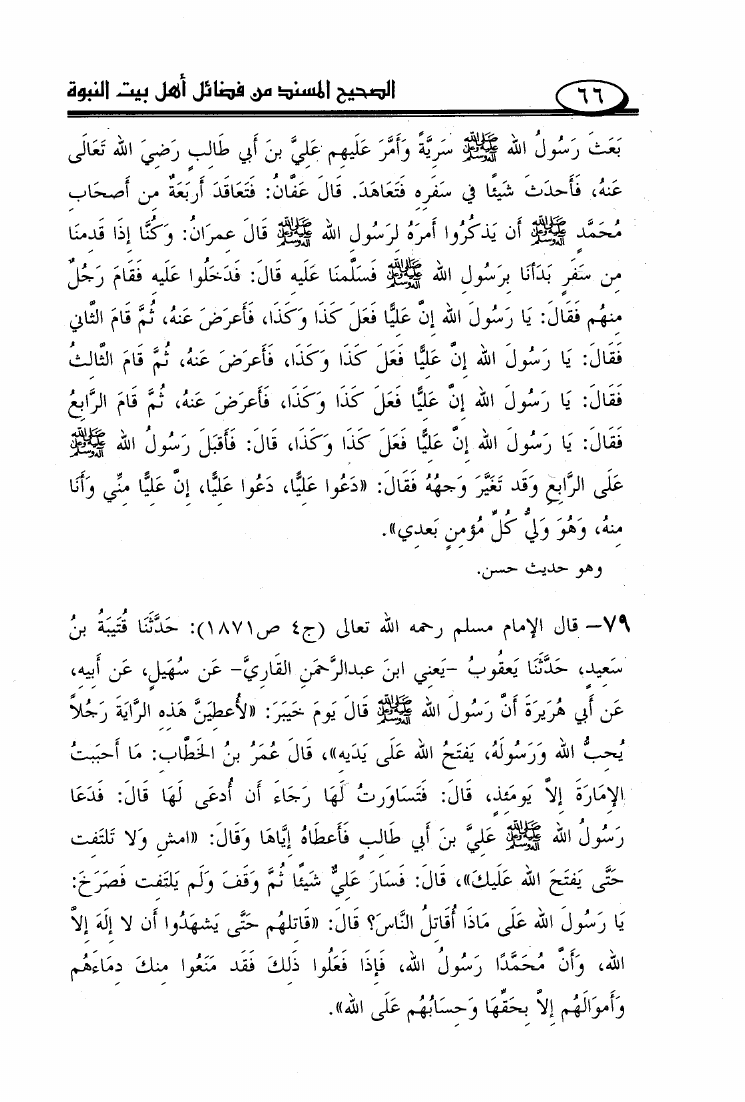 ٦٦ الصحيح المسند من فضائل أهل بيت النبوة
بَعَثَ رَسُولُ الله ﷺ سَرِيَّةً وَأَمَّرَ عَلَيهِم عَلِيَّ بنَ أَبي طَالِبٍ رَضِيَ الله تَعَالَى
عَنهُ، فَأَحدَثَ شَيئًا في سَفَرِه فَتَعَاهَدَ. قَالَ عَفَّانُ: فَتَعَاقَدَ أَربَعَةٌ مِن أَصحَابِ
مُحَمَّدٍ ﷺ أَن يَذكُرُوا أَمرَهُ لِرَسُولِ الله ﷺ قَالَ عِمرَانُ: وَكُنَّا إِذَا قَدِمنَا
مِن سَفَرٍ بَدَأنَا بِرَسُولِ الله ﷺ فَسَلَّمنَا عَلَيهِ قَالَ: فَدَخَلُوا عَلَيهِ فَقَامَ رَجُلٌ
مِنهُم فَقَالَ: يَا رَسُولَ الله إِنَّ عَلِيًّا فَعَلَ كَذَا وَكَذَا، فَأَعرَضَ عَنهُ، ثُمَّ قَامَ الثَّاني
فَقَالَ: يَا رَسُولَ الله إِنَّ عَلِيًّا فَعَلَ كَذَا وَكَذَا، فَأَعرَضَ عَنهُ، ثُمَّ قَامَ الثَّالِثُ
فَقَالَ: يَا رَسُولَ الله إِنَّ عَلِيًّا فَعَلَ كَذَا وَكَذَا، فَأَعرَضَ عَنهُ، ثُمَّ قَامَ الرَّابِعُ
فَقَالَ: يَا رَسُولَ الله إِنَّ عَلِيًّا فَعَلَ كَذَا وَكَذَا، قَالَ: فَأَقبَلَ رَسُولُ الله ﷺ
عَلَى الرَّابِعِ وَقَد تَغَيَّرَ وَجهُهُ فَقَالَ: «دَعُوا عَلِيًّا، دَعُوا عَلِيًّا، إِنَّ عَلِيًّا مِنِّي وَأَنَا
مِنهُ، وَهُوَ وَلِيُّ كُلِّ مُؤمِنٍ بَعدِي».
وهو حديث حسن.
٧٩- قال الإمام مسلم رحمه الله تعالى (ج٤ ص١٨٧١): حَدَّثَنَا قُتَيبَةُ بنُ
سَعِيدٍ، حَدَّثَنَا يَعقُوبُ -يَعنِي ابنَ عبدالرَّحمَنِ القَارِيَّ- عَن سُهَيلٍ، عَن أَبِيه،
عَن أَبي هُرَيرَةَ أَنَّ رَسُولَ الله ﷺ قَالَ يَومَ خَيبَرَ: «لأُعطِيَنَّ هَذِه الرَّايَةَ رَجُلاً
يُحِبُّ الله وَرَسُولَهُ، يَفتَحُ الله عَلَى يَدَيهِ»، قَالَ عُمَرُ بنُ الخَطَّابِ: مَا أَحبَبتُ
الإِمَارَةَ إِلاَّ يَومَئِذٍ، قَالَ: فَتَسَاوَرتُ لَهَا رَجَاءَ أَن أُدعَى لَهَا قَالَ: فَدَعَا
رَسُولُ الله ﷺ عَلِيَّ بنَ أَبي طَالِبٍ فَأَعطَاهُ إِيَّاهَا وَقَالَ: «امشِ وَلا تَلتَفِت
حَتَّى يَفتَحَ الله عَلَيكَ»، قَالَ: فَسَارَ عَلِيٌّ شَيئًا ثُمَّ وَقَفَ وَلَم يَلتَفِت فَصَرَخَ:
يَا رَسُولَ الله عَلَى مَاذَا أُقَاتِلُ النَّاسَ؟ قَالَ: «قَاتِلهُم حَتَّى يَشهَدُوا أَن لا إِلَهَ إِلاَّ
الله، وَأَنَّ مُحَمَّدًا رَسُولُ الله، فَإِذَا فَعَلُوا ذَلِكَ فَقَد مَنَعُوا مِنكَ دِمَاءَهُم
وَأَموَالَهُم إِلاَّ بِحَقِّهَا وَحِسَابُهُم عَلَى الله».